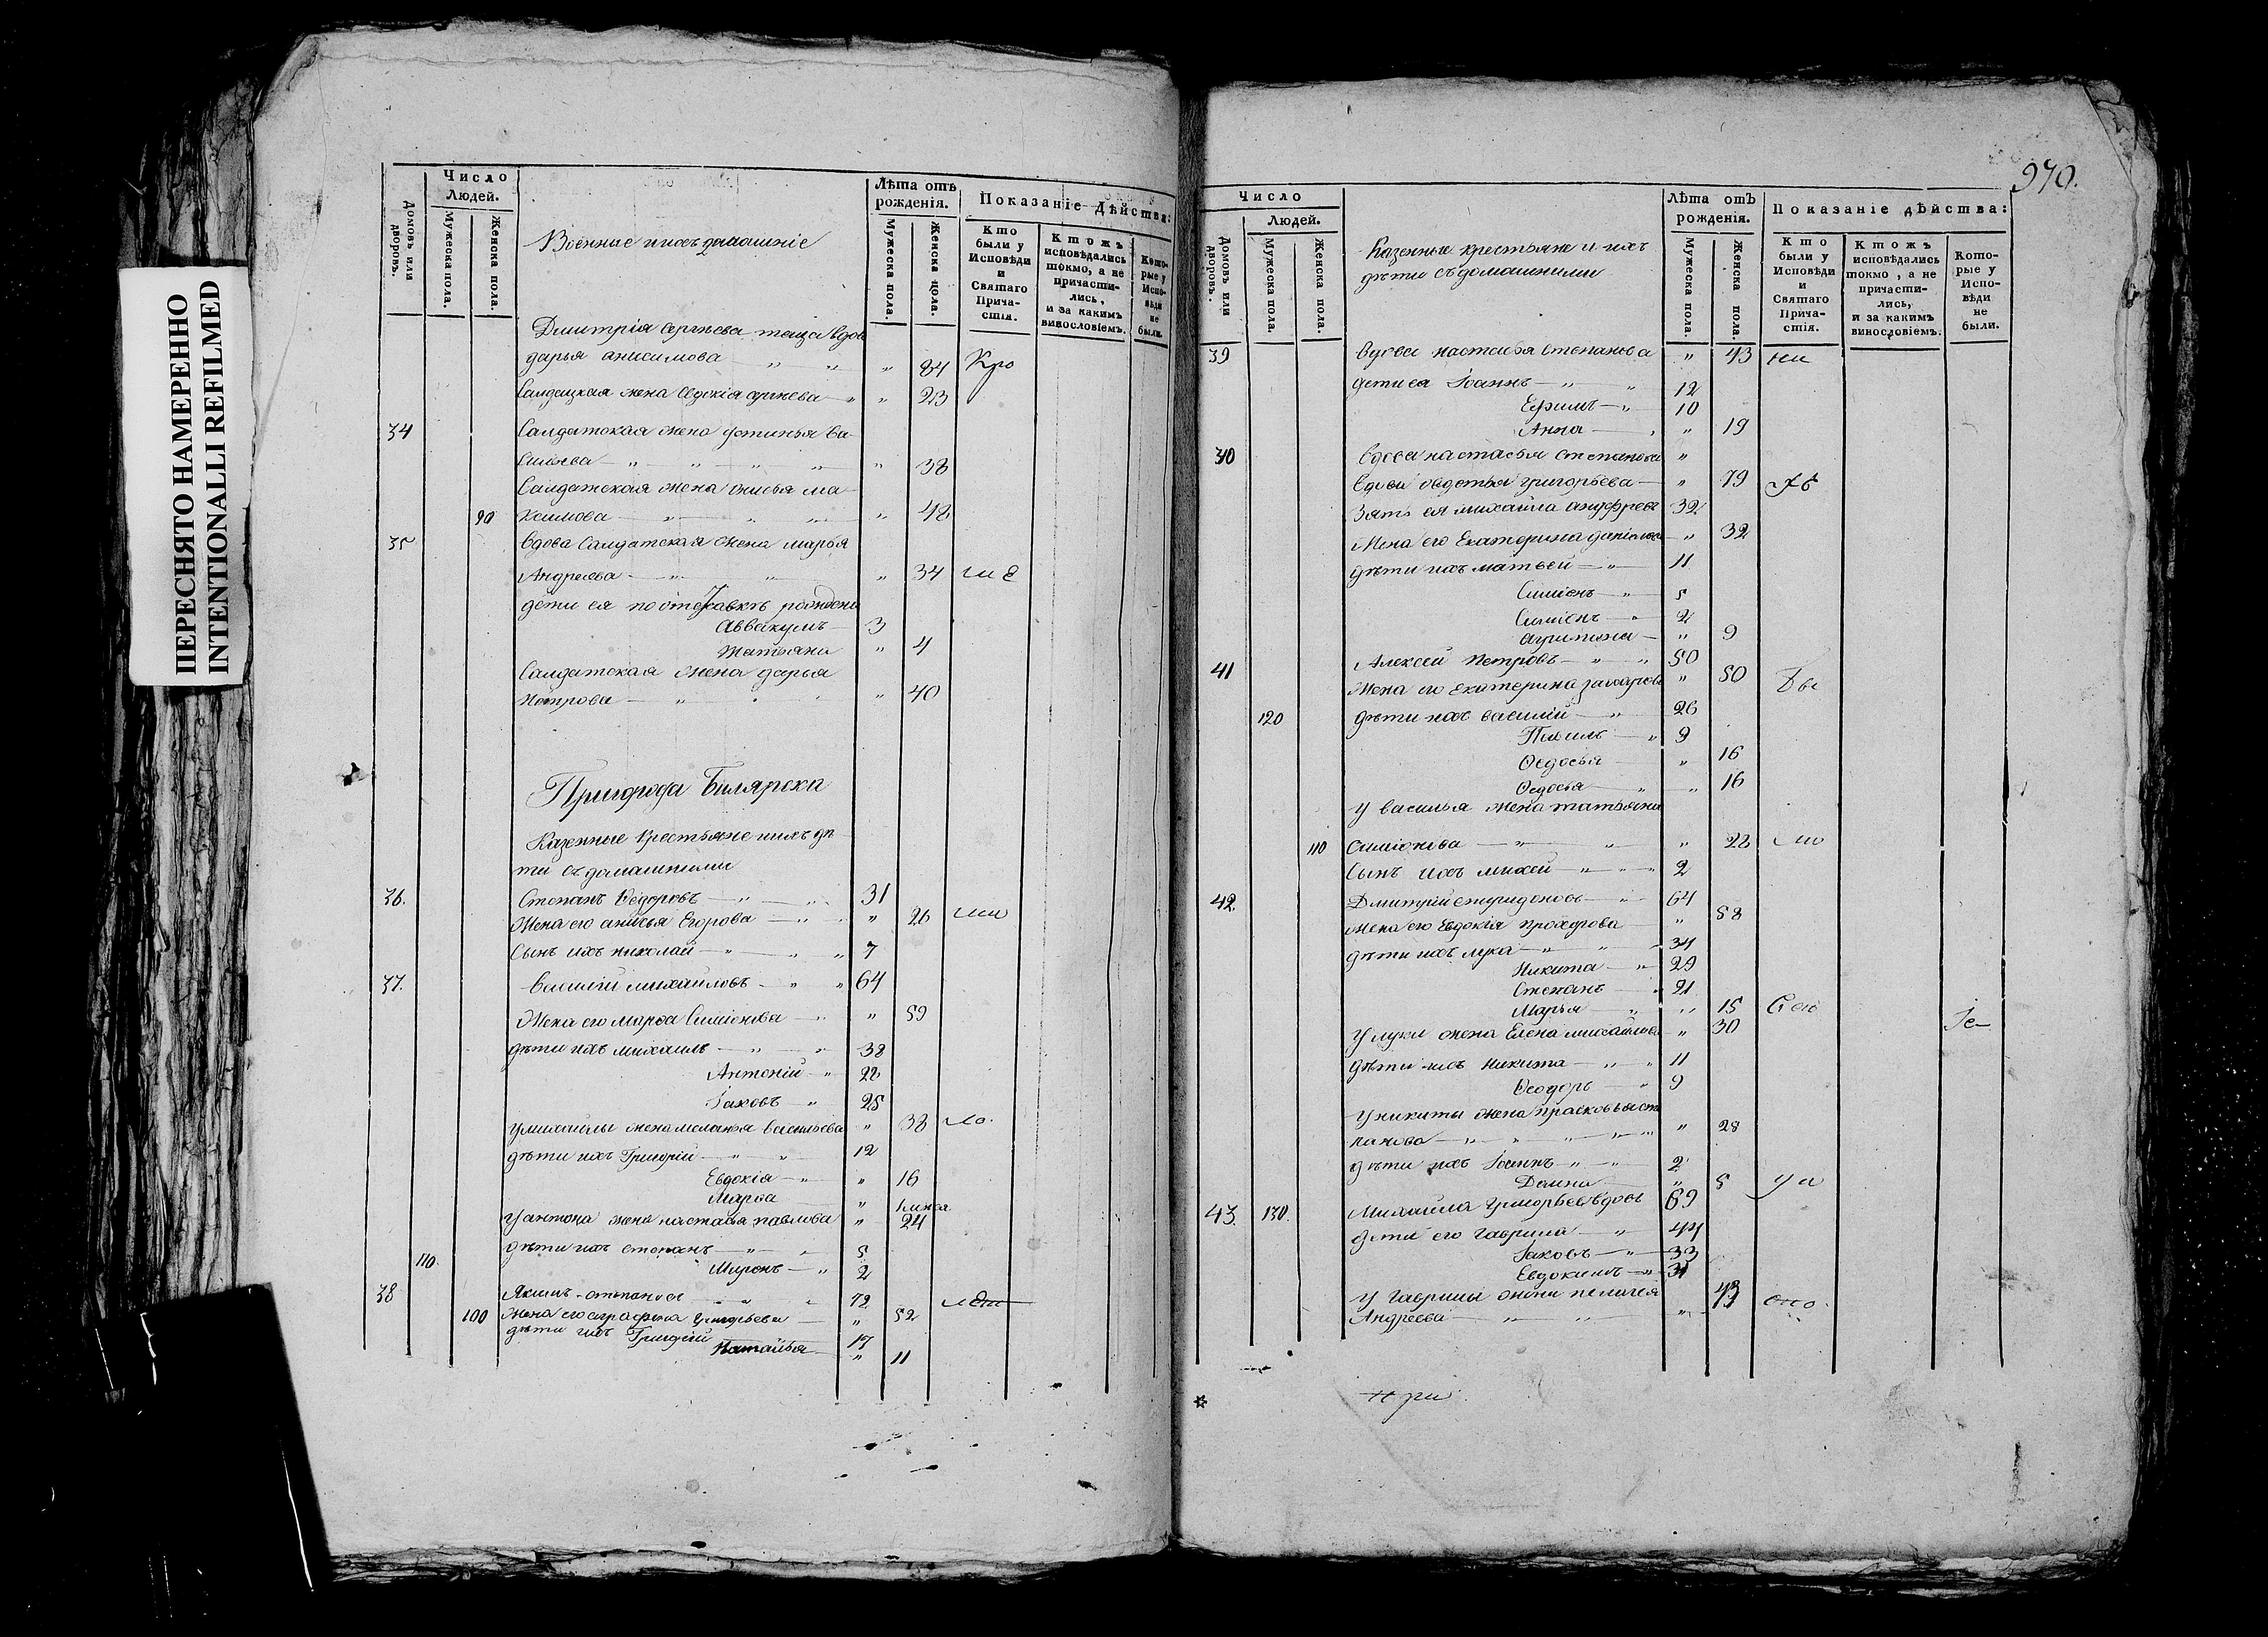 ПЕРЕСНЯТО НАМЕРЕННО
INTENTIONALLI REFILMED
Число
Людей.
Домовъ или дворовъ.
Мужеска пола.
Женска пола.
Военные и ихъ домашніе
Лѣта отъ рожденія.
Мужеска пола.
Женска пола.
Показаніе дѣйства:
Кто были у Исповѣди и Святаго Прича-стія.
Ктожъ исповѣдались токмо, а не причасти-лись, и за какимъ винословіемъ.
Кото-рые у Испо-вѣди не были.
Дмитрія Сергѣева теща вдов
дарья анисимова " " " 84
Салдацкая жена Евдокія сергѣева " " 23
34 Салдатская жена устинья Ва-
сильева " " " " " 38
Салдатская жена анисья ма-
90 ксимова " " " " 48
35 вдова Салдатская жена марья
Андреева " " " 34
дети ея по отставкѣ рождены
Аввакумъ 3
Татьяна " 4
Салдатская жена дарья
Петрова " " " 40
Пригорода Билярска
Казенные крестьяне и ихъ дѣ-
ти съ домашними
36. Степанъ Ѳедоровъ " " 31
Жена его анисья Егорова " " 26
Сынъ ихъ николай " " " 7
37. василій михайловъ " " 64
Жена его марѳа Симіонова " " 59
дѣти ихъ михаилъ " " 38
Антоній " 28
Іаковъ " 25
у михайлы жена меланья васильева " 38
дѣти ихъ Григорій " " 12
Евдокія " " 16
Марѳа "
у антона жена настасья павлова " 24
дѣти ихъ степанъ " " 5
110. Миронъ " 2
38 Якимъ степановъ " " 72
100 Жена его аграфена григорьева " 52
дѣти ихъ Григорій 17
Наталья " 11
970.
Число
Людей.
Домовъ или дворовъ.
Мужеска пола.
Женска пола.
Казенные крестьяне и ихъ
дѣти съ домашними
Лѣта отъ рожденія.
Мужеска пола.
Женска пола.
Показаніе дѣйства:
Кто были у Исповѣди и Святаго Прича-стія.
Ктожъ исповѣдались токмо, а не причасти-лись, и за какимъ винословіемъ.
Кото-рые у Испо-вѣди не были.
39 вдова настасья степанова " 43
дети ея Іоаннъ " " 12
Ефимъ " 10
Анна " 19
вдова настасья степанова "
вдова авдотья григорьева " 79
Зять ея михайла ануфрев 32
Жена его Екатерина даніилова " 32
дѣти ихъ матвей " 11
Симіонъ " 5
Симіонъ " 2
" 9
41 Алексей Петровъ " " 50
Жена его Екатерина захарова " 50
120 дѣти ихъ василій " 26
Павилъ " 9
Ѳедосья " 16
Ѳедосья " " 16
у василья жена татьяна
110 Симіонова " " " 22
Сынъ ихъ михей " " " 2
42. Дмитрій спиридоновъ " 64
Жена его Евдокія прохорова " 58
дѣти ихъ лука " " 34
Никита " 29
Степанъ " 21
Марья " " 15
у луки жена Елена михайлова " 30
дѣти ихъ никита " " 11
Ѳеодоръ " 9
у никиты жена прасковья сте
панова " " " " " 28
дѣти ихъ Іоаннъ " " 2
Домна " 5
43. 130. Михайла григорьевъ вдовъ 69
дети его гаврила " 44
Іаковъ " 33
Евдокимъ " 31
у гаврилы жена пелагея 43
Андреева " " "
при